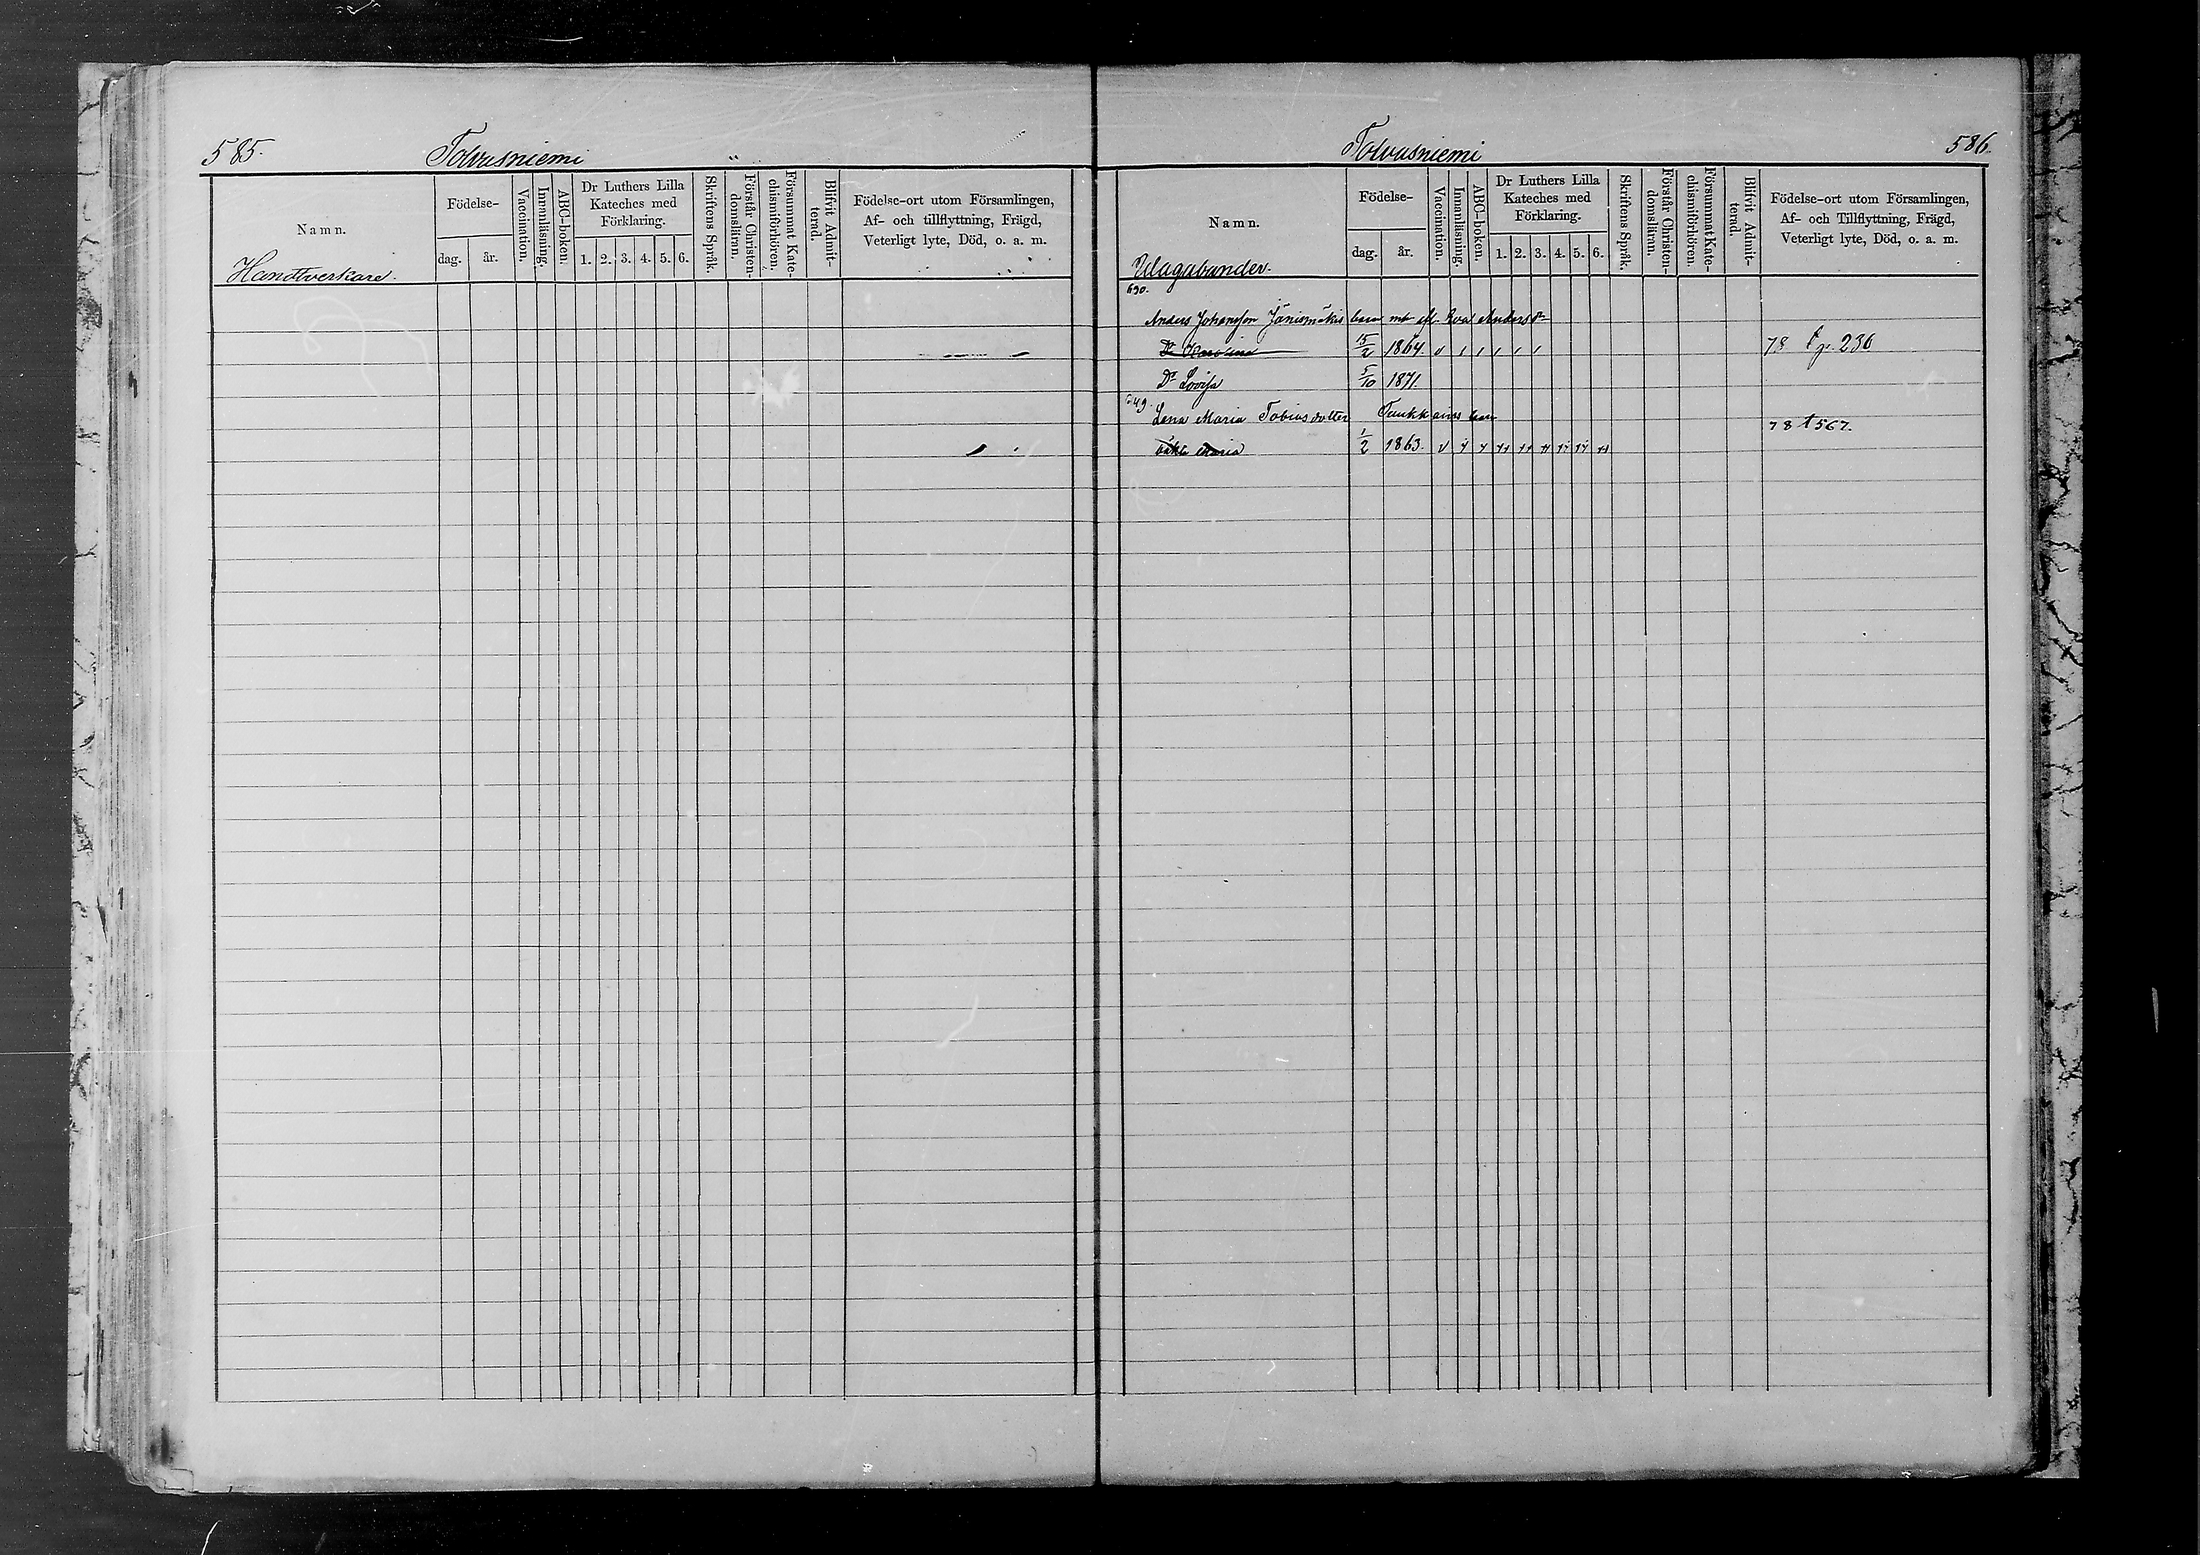 585.
Tolvasniemi
Namn.
Födelse-
dag.
år.
Vaccination.
Innanläsning.
ABC-boken.
Dr Luthers Lilla
Kateches med
Förklaring.
1. 2. 3. 4. 5. 6.
Skriftens Språk.
Förstår Christen-
domsläran.
Försummat Kate-
chismiförhören.
Blifvit Admit-
terad.
Födelse-ort utom Församlingen,
Af- och tillflyttning, Frägd,
Veterligt lyte, Död, o. a. m.
Handtverkare.
Tolvasniemi
586.
Namn.
Födelse-
dag.
år.
Vaccination.
Innanläsning.
ABC-boken.
Dr Luthers Lilla
Kateches med
Förklaring.
1. 2. 3. 4. 5. 6.
Skriftens Språk.
Förstår Christen-
domsläran.
Försummat Kate-
chismiförhören.
Blifvit Admit-
terad.
Födelse-ort utom Församlingen,
Af- och Tillflyttning, Frägd,
Veterligt lyte, Död, o. a. m.
690.
Anders Johansson Jänismäkis barn
Dr Karolina 15/2 1864. 78 230
Dr Lovisa 5/10 1871.
Lena Maria Tobiasdotter barn
78 567.
Maria 1/2 1863.